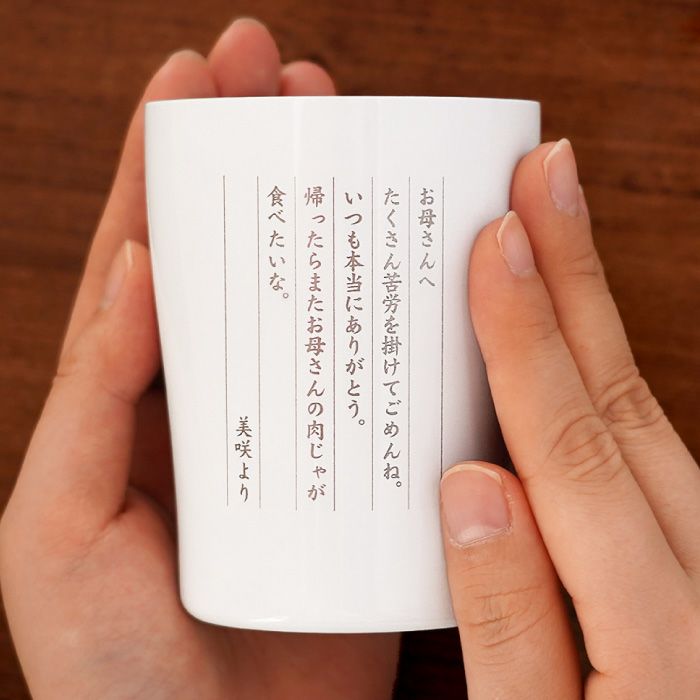 お母さんへ
たくさん苦労を掛けてごめんね。
いつも本当にありがとう。
帰ったらまたお母さんの肉じゃが
食べたいな。
美咲より